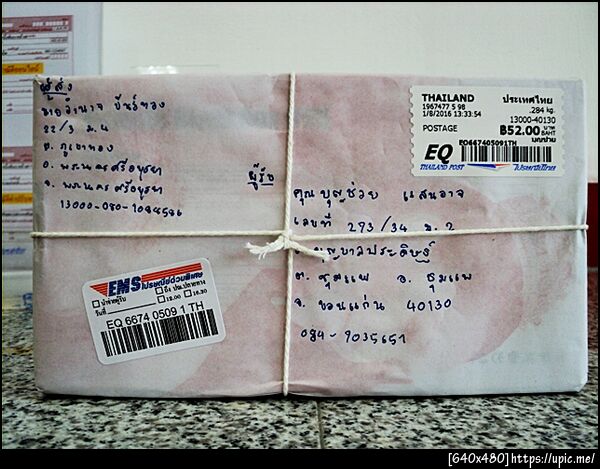 ผู้ส่ง
22/3 ม.4
ต. ภูเขาทอง
อ. พระนครศรีอยุธยา
จ. พระนครศรีอยุธยา
13000-080-1084586
THAILAND ประเทศไทย
1967477 5 98 .284 kg.
1/8/2016 13:33:54 13000-40130
POSTAGE ฿52.00 บาท BAHT
EQ EQ667405091TH
THAILAND POST ไปรษณีย์ไทย
ผู้รับ
คุณ บุญช่วย แสนอาจ
เลขที่ 293/34 ม. 2
ต. ชุมแพ อ. ชุมแพ
จ. ขอนแก่น 40130
084-9035651
EMS ไปรษณีย์ด่วนพิเศษ
นำจ่ายผู้รับ ถึง ปณ.ปลายทาง
วันที่ 12.00 16.30
EQ 6674 0509 1 TH
[640x480]https://upic.me/